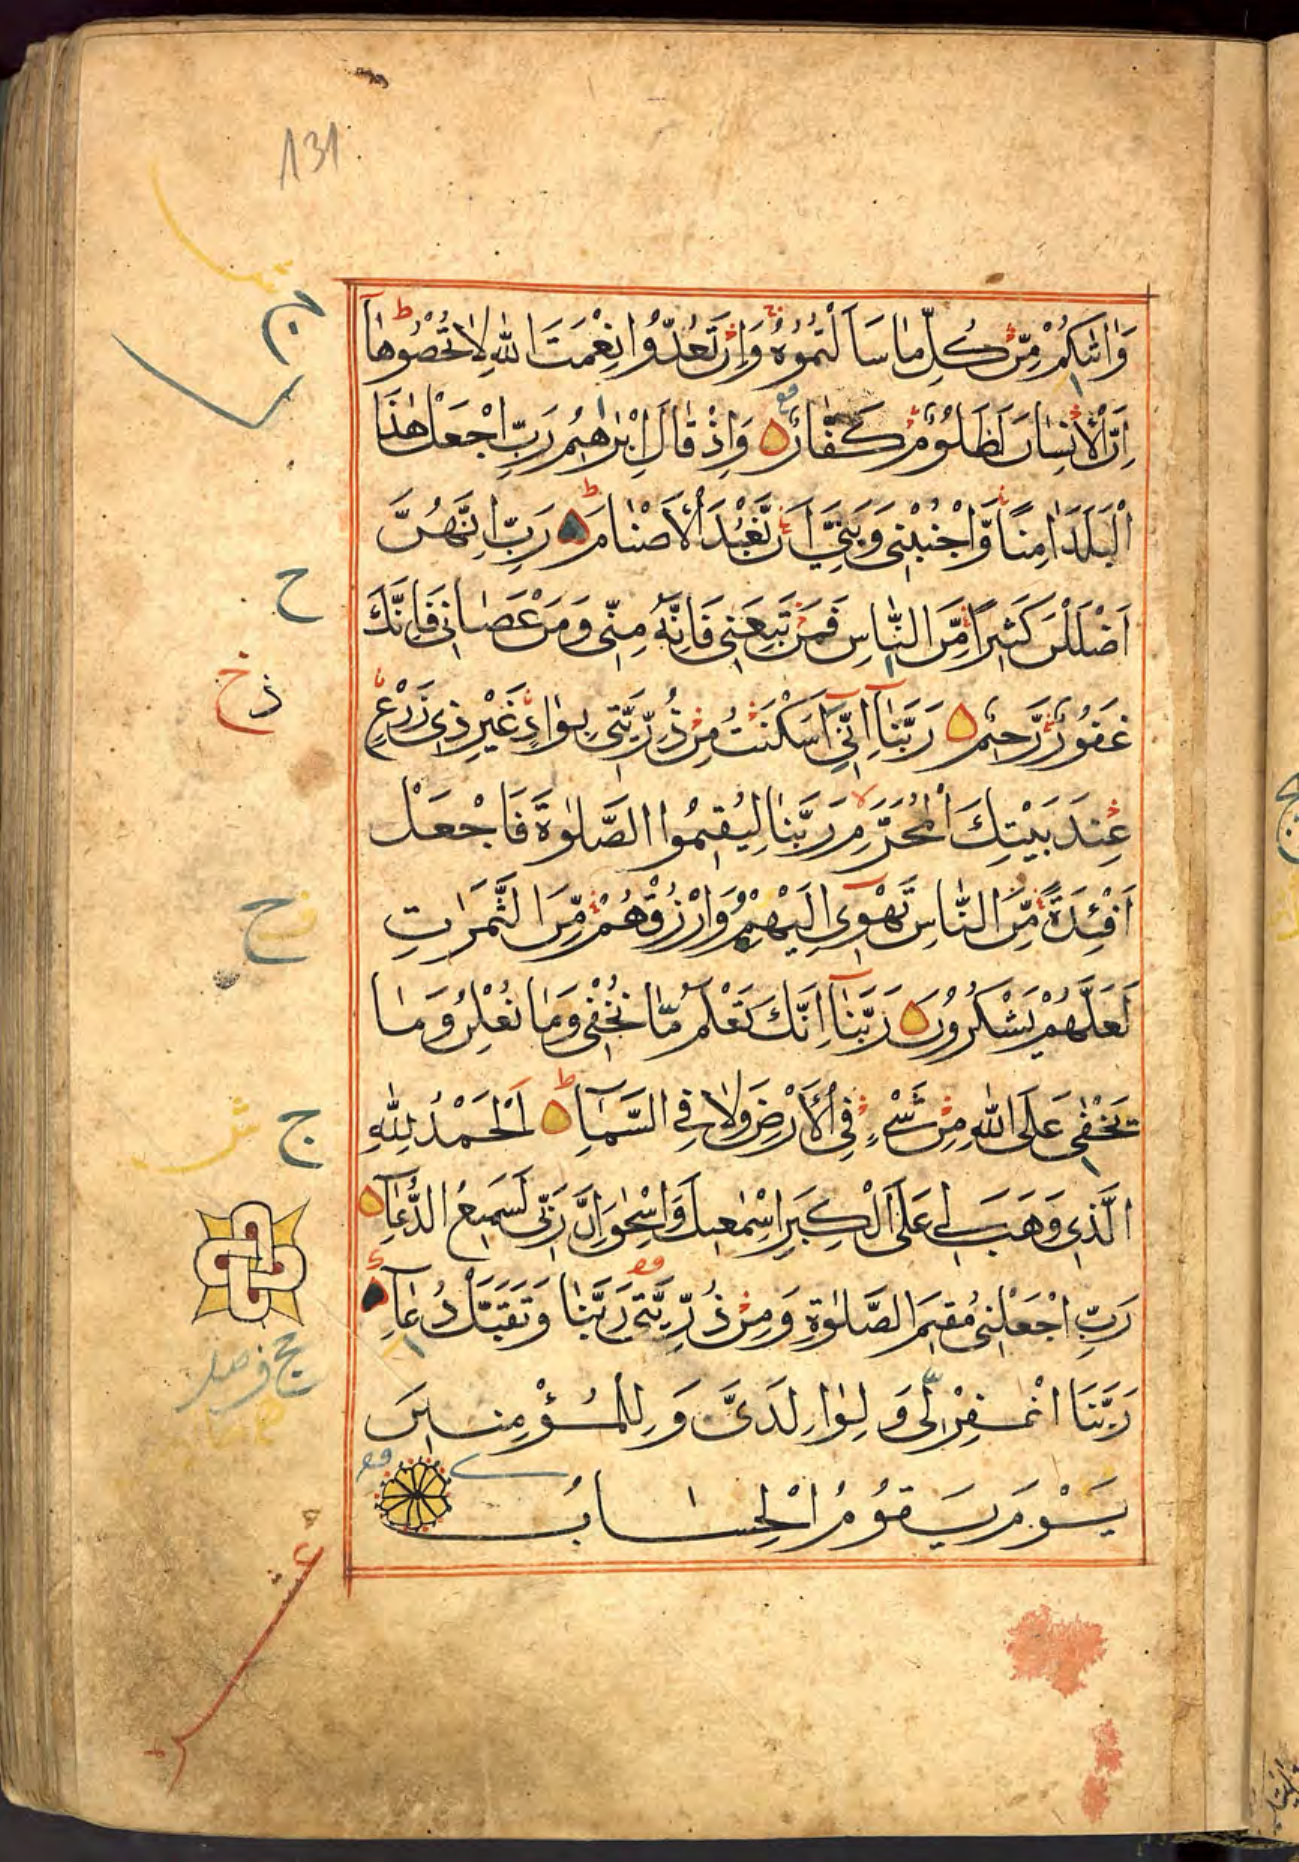 131
وَاٰتٰىكُمْ مِّنْ كُلِّ مَا سَاَلْتُمُوْهُ وَاِنْ تَعُدُّوْا نِعْمَتَ اللّٰهِ لَا تُحْصُوْهَا
اِنَّ الْاِنْسَانَ لَظَلُوْمٌ كَفَّارٌ وَاِذْ قَالَ اِبْرٰهِيْمُ رَبِّ اجْعَلْ هٰذَا
الْبَلَدَ اٰمِنًا وَّاجْنُبْنِيْ وَبَنِيَّ اَنْ نَّعْبُدَ الْاَصْنَامَ رَبِّ اِنَّهُنَّ
اَضْلَلْنَ كَثِيْرًا مِّنَ النَّاسِ فَمَنْ تَبِعَنِيْ فَاِنَّهٗ مِنِّيْ وَمَنْ عَصَانِيْ فَاِنَّكَ
غَفُوْرٌ رَّحِيْمٌ رَبَّنَا اِنِّيْ اَسْكَنْتُ مِنْ ذُرِّيَّتِيْ بِوَادٍ غَيْرِ ذِيْ زَرْعٍ
عِنْدَ بَيْتِكَ الْمُحَرَّمِ رَبَّنَا لِيُقِيْمُوا الصَّلٰوةَ فَاجْعَلْ
اَفْئِدَةً مِّنَ النَّاسِ تَهْوِيْ اِلَيْهِمْ وَارْزُقْهُمْ مِّنَ الثَّمَرٰتِ
لَعَلَّهُمْ يَشْكُرُوْنَ رَبَّنَا اِنَّكَ تَعْلَمُ مَا نُخْفِيْ وَمَا نُعْلِنُ وَمَا
يَخْفٰى عَلَى اللّٰهِ مِنْ شَيْءٍ فِي الْاَرْضِ وَلَا فِي السَّمَآءِ اَلْحَمْدُ لِلّٰهِ
الَّذِيْ وَهَبَ لِيْ عَلَى الْكِبَرِ اِسْمٰعِيْلَ وَاِسْحٰقَ اِنَّ رَبِّيْ لَسَمِيْعُ الدُّعَآءِ
رَبِّ اجْعَلْنِيْ مُقِيْمَ الصَّلٰوةِ وَمِنْ ذُرِّيَّتِيْ رَبَّنَا وَتَقَبَّلْ دُعَآءِ
رَبَّنَا اغْفِرْ لِيْ وَلِوَالِدَيَّ وَلِلْمُؤْمِنِيْنَ
يَوْمَ يَقُوْمُ الْحِسَابُ